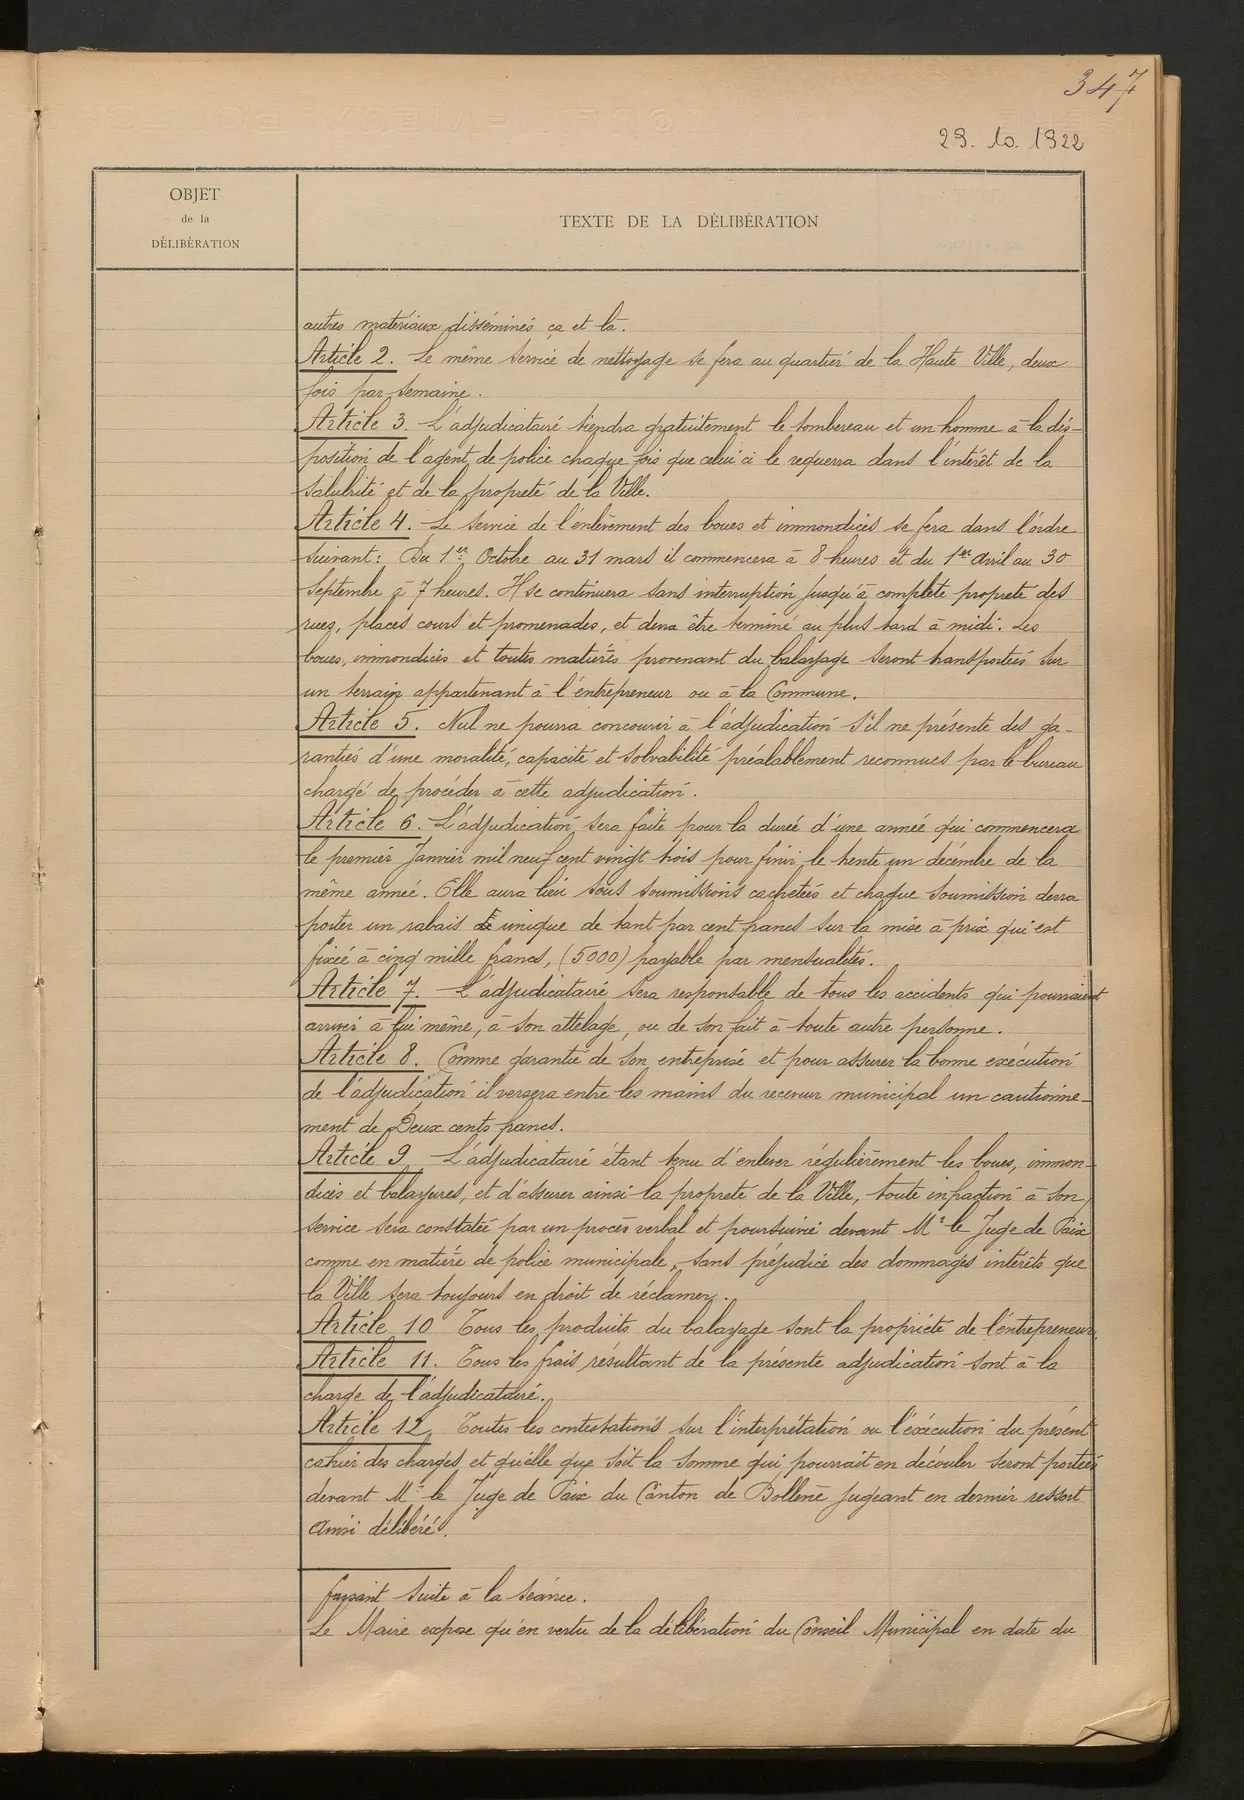 347
29. 10. 1922
OBJET
de la
DÉLIBÉRATION
TEXTE DE LA DÉLIBÉRATION
autres matériaux disséminés ça et là.
Article 2. Le même service de nettoyage se fera au quartier de la Haute Ville, deux
fois par semaine.
Article 3. L'adjudicataire tiendra gratuitement le tombereau et un homme à la dis-
position de l'agent de police chaque fois que celui ci le requerra dans l'intérêt de la
salubrité et de la propreté de la Ville.
Article 4. Le service de l'enlèvement des boues et immondices se fera dans l'ordre
suivant: Du 1er Octobre au 31 mars il commencera à 8 heures et du 1er avril au 30
Septembre à 7 heures. Il se continuera sans interruption jusqu'à complète propreté des
rues, places cours et promenades, et devra être terminé au plus tard à midi. Les
boues, immondices et toutes matières provenant du balayage seront transportées sur
un terrain appartenant à l'entrepreneur ou à la Commune.
Article 5. Nul ne pourra concourir à l'adjudication s'il ne présente des ga-
ranties d'une moralité, capacité et solvabilité préalablement reconnues par le bureau
chargé de procéder à cette adjudication.
Article 6. L'adjudication sera faite pour la durée d'une année qui commencera
le premier Janvier mil neuf cent vingt trois pour finir le trente un décembre de la
même année. Elle aura lieu sous soumissions cachetées et chaque soumission devra
porter un rabais unique de tant par cent francs sur la mise à prix qui est
fixée à cinq mille francs, (5000) payable par mensualités.
Article 7. L'adjudicataire sera responsable de tous les accidents qui pourraient
arriver à lui même, à son attelage, ou de son fait à toute autre personne.
Article 8. Comme garantie de son entreprise et pour assurer la bonne exécution
de l'adjudication il versera entre les mains du receveur municipal un cautionne-
ment de Deux cents francs.
Article 9 L'adjudicataire étant tenu d'enlever régulièrement les boues, immon-
dices et balayures, et d'assurer ainsi la propreté de la Ville, toute infraction à son
service sera constatée par un procès verbal et poursuivie devant Mr le Juge de Paix
comme en matière de police municipale, sans préjudice des dommages intérêts que
la Ville sera toujours en droit de réclamer.
Article 10 Tous les produits du balayage sont la propriété de l'entrepreneur.
Article 11. Tous les frais résultant de la présente adjudication sont à la
charge de l'adjudicataire.
Article 12. Toutes les contestations sur l'interprétation ou l'exécution du présent
cahier des charges et quelle que soit la somme qui pourrait en découler seront portées
devant Mr le Juge de Paix du Canton de Bollène jugeant en dernier ressort
Ainsi délibéré.
faisant suite à la séance.
Le Maire expose qu'en vertu de la délibération du Conseil Municipal en date du